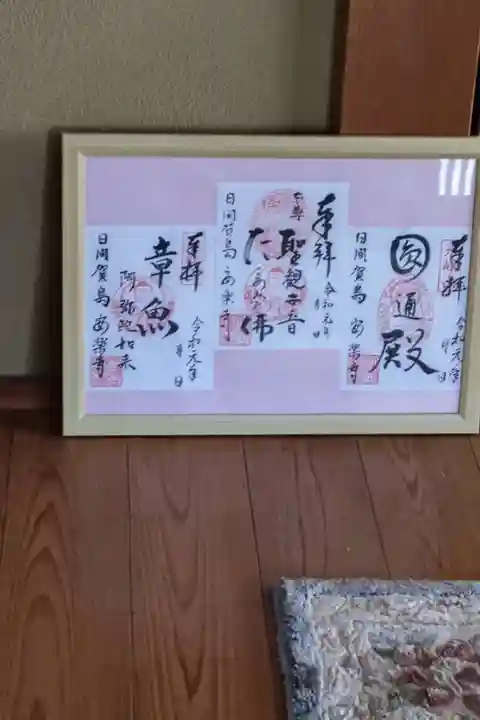 奉拝
令和元年
月 日
圓通殿
日間賀島 安楽寺
奉拝
令和元年
月 日
本尊
聖観世音
たこあみだ佛
日間賀島 安楽寺
奉拝
令和元年
月 日
章魚
阿弥陀如来
日間賀島 安楽寺